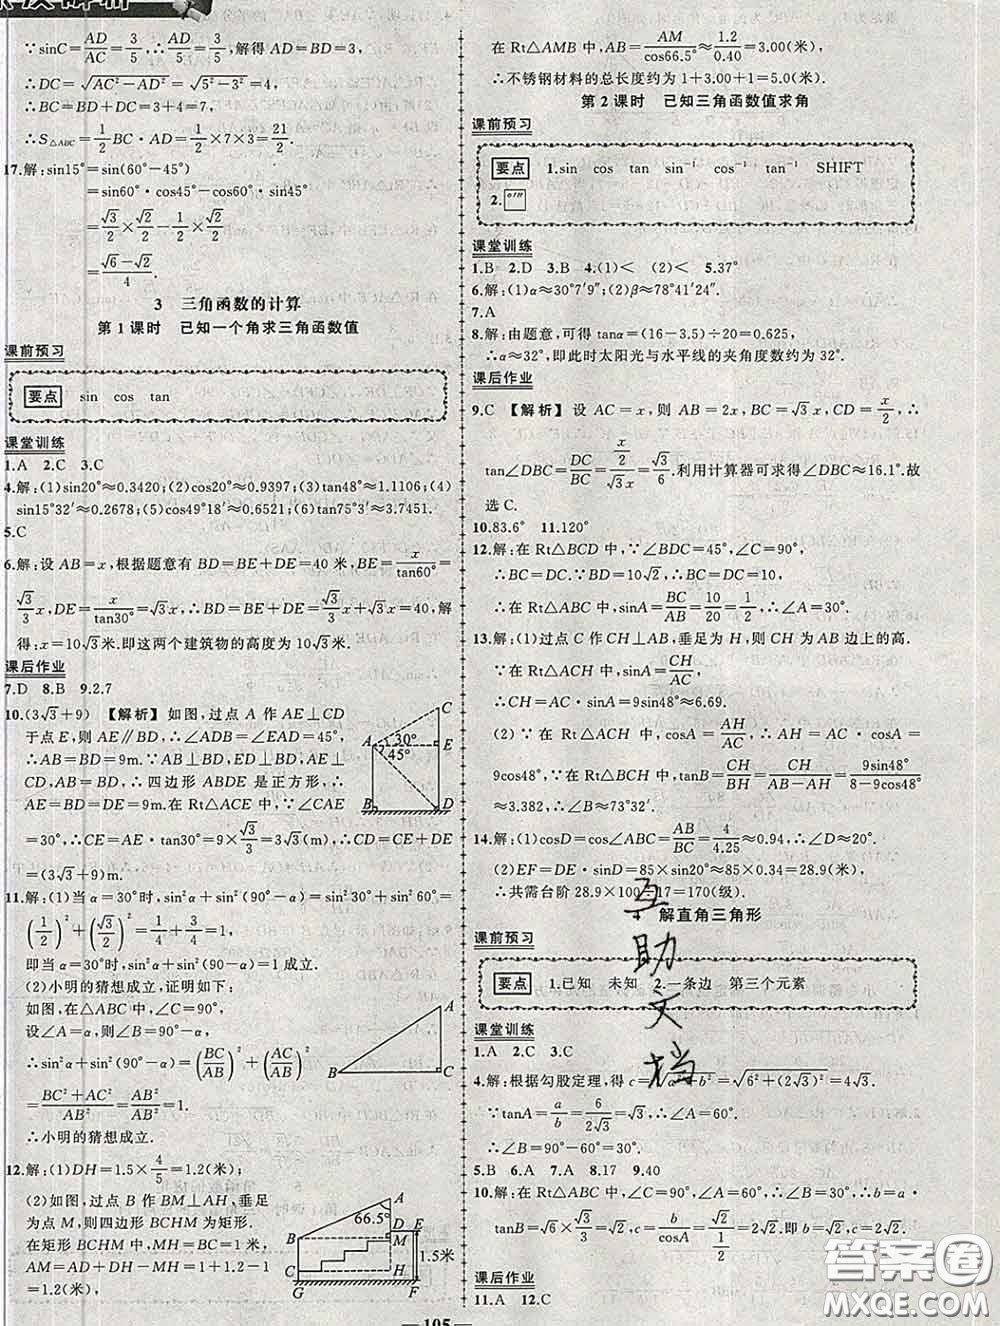 ∵sinC=AD/AC=3/5,∴AD/5=3/5,解得 AD=BD=3,
∴DC=√(AC²-AD²)=√(5²-3²)=4,
∴BC=BD+DC=3+4=7,
∴S△ABC=1/2 BC·AD=1/2×7×3=21/2.
17.解:sin15°=sin(60°-45°)
=sin60°·cos45°-cos60°·sin45°
=√3/2×√2/2-1/2×√2/2
=(√6-√2)/4.
3 三角函数的计算
第1课时 已知一个角求三角函数值
课前预习
要点 sin cos tan
课堂训练
1.A 2.C 3.C
4.解:(1)sin20°≈0.3420;(2)cos20°≈0.9397;(3)tan48°≈1.1106;(4)
sin15°32′≈0.2678;(5)cos49°18′≈0.6521;(6)tan75°3′≈3.7451.
5.C
6.解:设 AB=x,根据题意有 BD=BE+DE=40 米,BE=x/tan60°=
√3/3 x,DE=x/tan30°=√3x,∴BD=BE+DE=√3/3 x+√3x=40,解
得:x=10√3.即这两个建筑物的高度为 10√3米.
课后作业
7.D 8.B 9.2.7
10.(3√3+9) 【解析】如图,过点 A 作 AE⊥CD
于点 E,则 AE∥BD,∴∠ADB=∠EAD=45°,
∴AB=BD=9m.∵AB⊥BD,ED⊥BD,AE⊥
CD,AB=BD,∴四边形 ABDE 是正方形,∴
AE=BD=DE=9m.在 Rt△ACE 中,∵∠CAE
=30°,∴CE=AE·tan30°=9×√3/3=3√3(m),∴CD=CE+DE
=(3√3+9)m.
C
A 30° E
45°
B D
11.解:(1)当 α=30°时,sin²α+sin²(90°-α)=sin²30°+sin²60°=
(1/2)²+(√3/2)²=1/4+3/4=1,
即当 α=30°时,sin²α+sin²(90°-α)=1 成立.
(2)小明的猜想成立,证明如下:
如图,在△ABC 中,∠C=90°,
设∠A=α,则∠B=90°-α,
∴sin²α+sin²(90°-α)=(BC/AB)²+(AC/AB)²
=(BC²+AC²)/AB²=AB²/AB²=1.
∴小明的猜想成立.
A
B C
12.解:(1)DH=1.5×4/5=1.2(米);
(2)如图,过点 B 作 BM⊥AH,垂足
为点 M,则四边形 BCHM 为矩形.
在矩形 BCHM 中,MH=BC=1 米,
AM=AD+DH-MH=1+1.2-1
=1.2(米),
A
66.5°
D E
B M
1.5米
C H
G F
在 Rt△AMB 中,AB=AM/cos66.5°≈1.2/0.40=3.00(米),
∴不锈钢材料的总长度约为 1+3.00+1=5.0(米).
第2课时 已知三角函数值求角
课前预习
要点 1.sin cos tan sin⁻¹ cos⁻¹ tan⁻¹ SHIFT
2. °′″
课堂训练
1.B 2.D 3.B 4.(1)< (2)< 5.37°
6.解:(1)α≈30°7′9″;(2)β≈78°41′24″.
7.A
8.解:由题意,可得 tanα=(16-3.5)÷20=0.625,
∴α≈32°,即此时太阳光与水平线的夹角度数约为 32°.
课后作业
9.C 【解析】设 AC=x,则 AB=2x,BC=√3x,CD=x/2,∴
tan∠DBC=DC/BC=(x/2)/(√3x)=√3/6.利用计算器可求得∠DBC≈16.1°.故
选 C.
10.83.6° 11.120°
12.解:在 Rt△BCD 中,∵∠BDC=45°,∠C=90°,
∴BC=DC.∵BD=10√2,∴BC=DC=10,
∴在 Rt△ABC 中,sinA=BC/AB=10/20=1/2,∴∠A=30°.
13.解:(1)过点 C 作 CH⊥AB,垂足为 H,则 CH 为AB 边上的高.
∵在 Rt△ACH 中,sinA=CH/AC,
∴CH=AC·sinA=9sin48°≈6.69.
(2)∵在 Rt△ACH 中,cosA=AH/AC,∴AH=AC·cosA=
9cos48°,∴在 Rt△BCH 中,tanB=CH/BH=CH/(AB-AH)=9sin48°/(8-9cos48°)
≈3.382,∴∠B≈73°32′.
14.解:(1)cosD=cos∠ABC=AB/BC=4/4.25≈0.94,∴∠D≈20°.
(2)EF=DE·sinD=85×sin20°≈85×0.34=28.9(米),
∴共需台阶 28.9×100÷17=170(级).
4 解直角三角形
课前预习
要点 1.已知 未知 2.一条边 第三个元素
课堂训练
1.A 2.C 3.C
4.解:根据勾股定理,得 c=√(a²+b²)=√(6²+(2√3)²)=4√3.
∵tanA=a/b=6/(2√3)=√3,∴∠A=60°,
∴∠B=90°-60°=30°.
5.B 6.A 7.A 8.17 9.40
10.解:在 Rt△ABC 中,∠C=90°,∠A=60°,∠B=30°,∴b=a·
tanB=√6×√3/3=√2,c=b/cosA=√2/(1/2)=2√2.即 b=√2,c=2√2.
课后作业
11.A 12.C
互助文档
答案圈
MXQE.COM
105